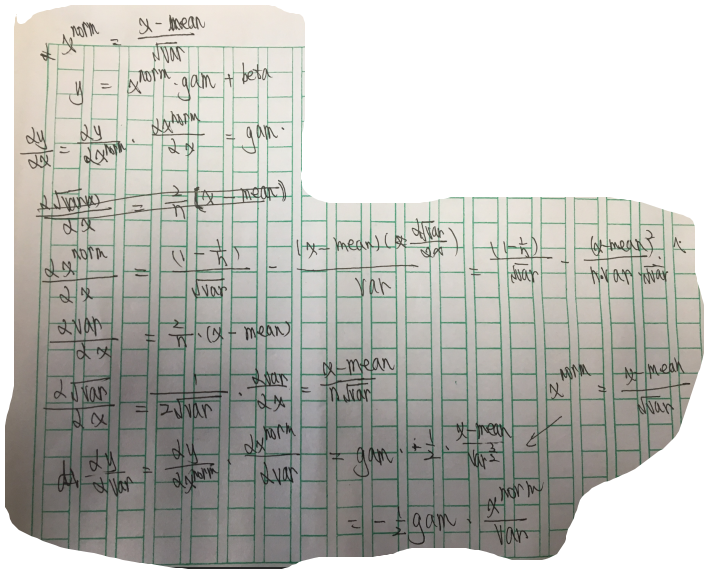 x^norm = (x - mean) / √var
y = x^norm · gam + beta
∂y/∂x = ∂y/∂x^norm · ∂x^norm/∂x = gam ·
∂√var/∂x = 2/n (x - mean)
∂x^norm/∂x = (1 - 1/n)/√var - (x - mean)(∂√var/∂x)/var = (1 - 1/n)/√var - (x - mean)²/(n·var·√var)
∂var/∂x = 2/n · (x - mean)
∂√var/∂x = 1/(2√var) · ∂var/∂x = (x - mean)/(n√var)
x^norm = (x - mean)/√var
∂y/∂var = ∂y/∂x^norm · ∂x^norm/∂var = gam · -1/2 · (x - mean)/var^(3/2)
= -1/2 gam · x^norm/var